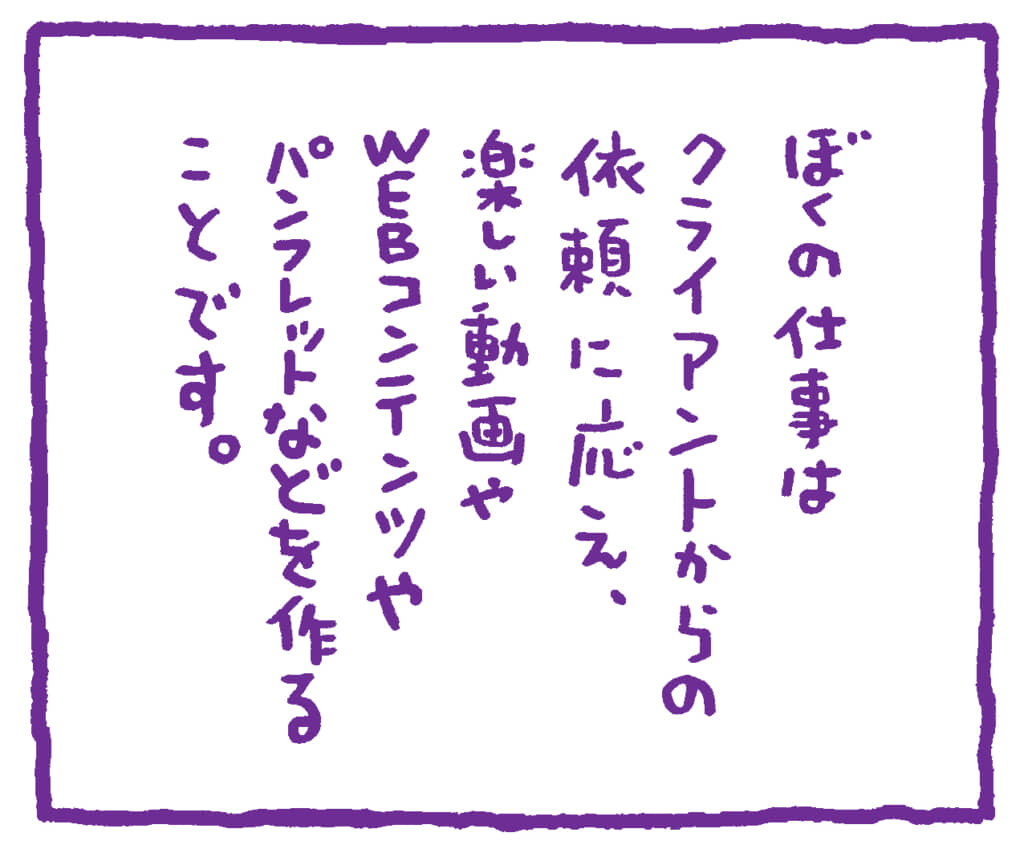 ぼくの仕事は
クライアントからの
依頼に応え、
楽しい動画や
WEBコンテンツや
パンフレットなどを作る
ことです。